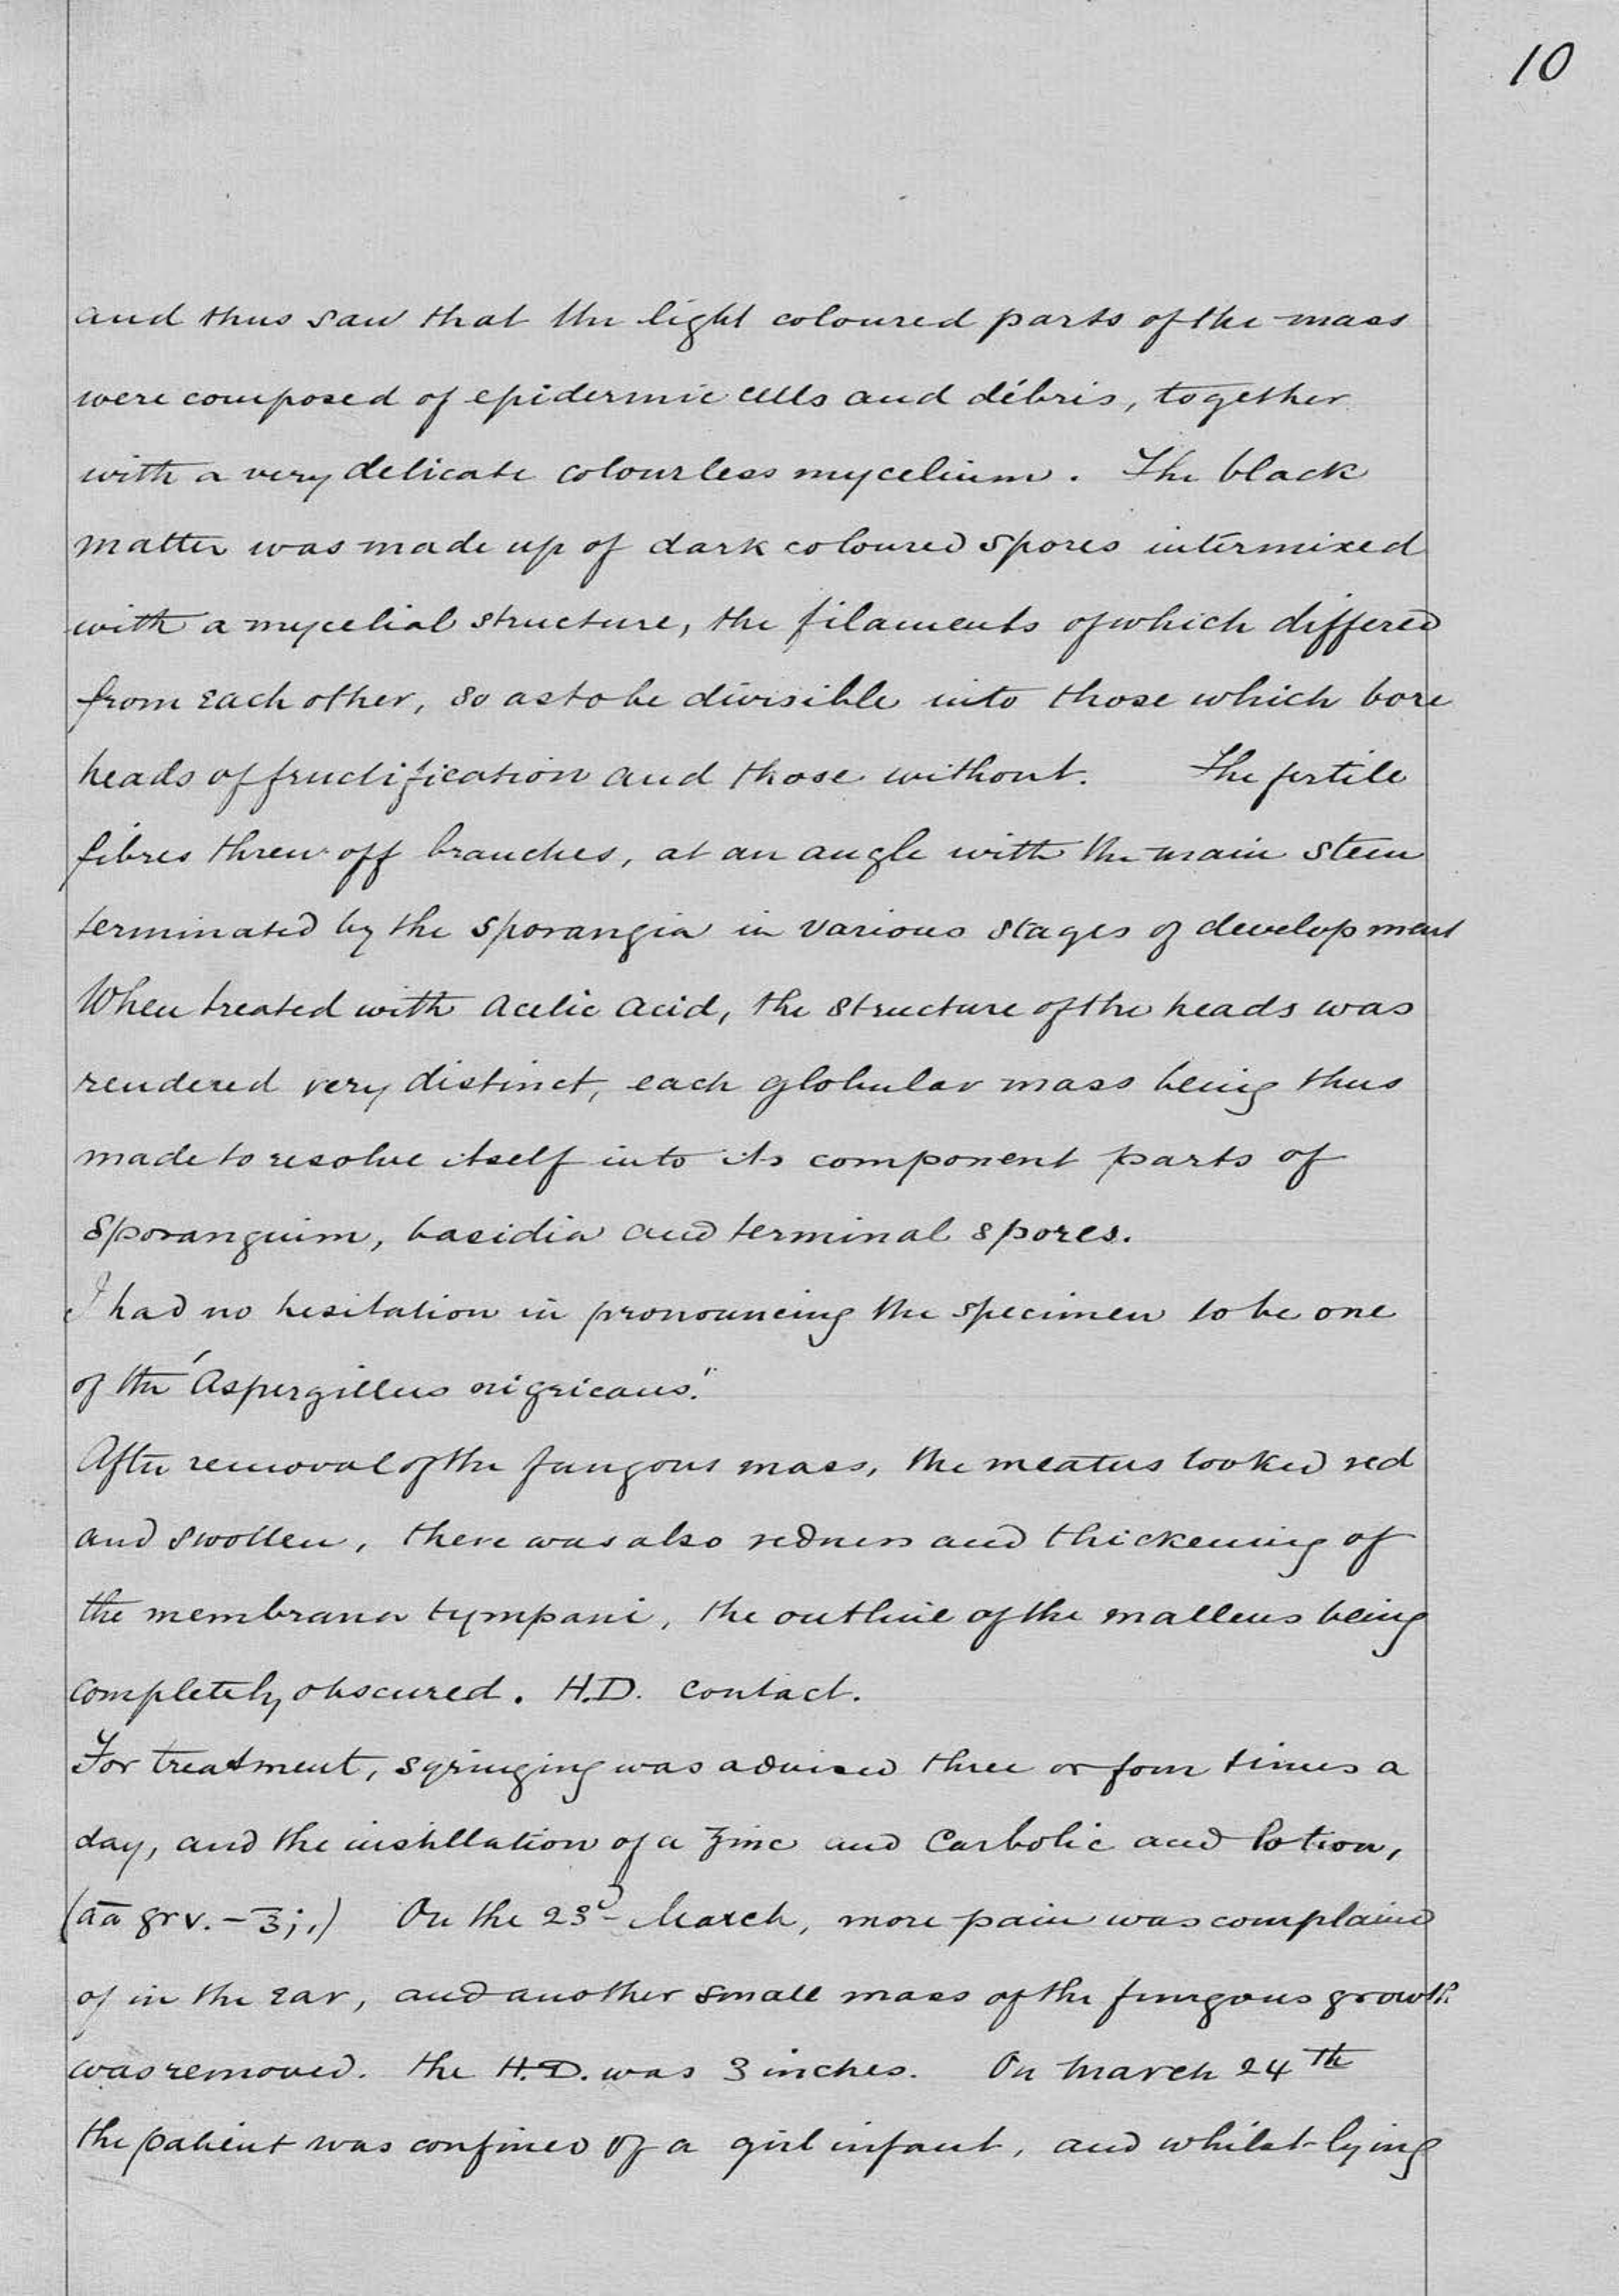 10
and thus saw that the light coloured parts of the mass
were composed of epidermic cells and débris, together
with a very delicate colourless mycelium. The black
matter was made up of dark coloured spores intermixed
with a mycelial structure, the filaments of which differed
from each other, so as to be divisible into those which bore
heads of fructification and those without. The fertile
fibres threw off branches, at an angle with the main stem
terminated by the sporangia in various stages of development
When treated with acetic acid, the structure of the heads was
rendered very distinct, each globular mass being thus
made to resolve itself into its component parts of
sporangium, basidia and terminal spores.
I had no hesitation in pronouncing the specimen to be one
of the 'Aspergillus nigricans."
After removal of the fungous mass, the meatus looked red
and swollen, there was also redness and thickening of
the membrana tympani, the outline of the malleus being
completely obscured. H.D. contact.
For treatment, syringing was advised three or four times a
day, and the instillation of a zinc and Carbolic acid lotion,
(āā gr v. – ℥j,) On the 23d March, more pain was complained
of in the ear, and another small mass of the fungous growth
was removed. the H.D. was 3 inches. On March 24th
the patient was confined of a girl infant, and whilst lying